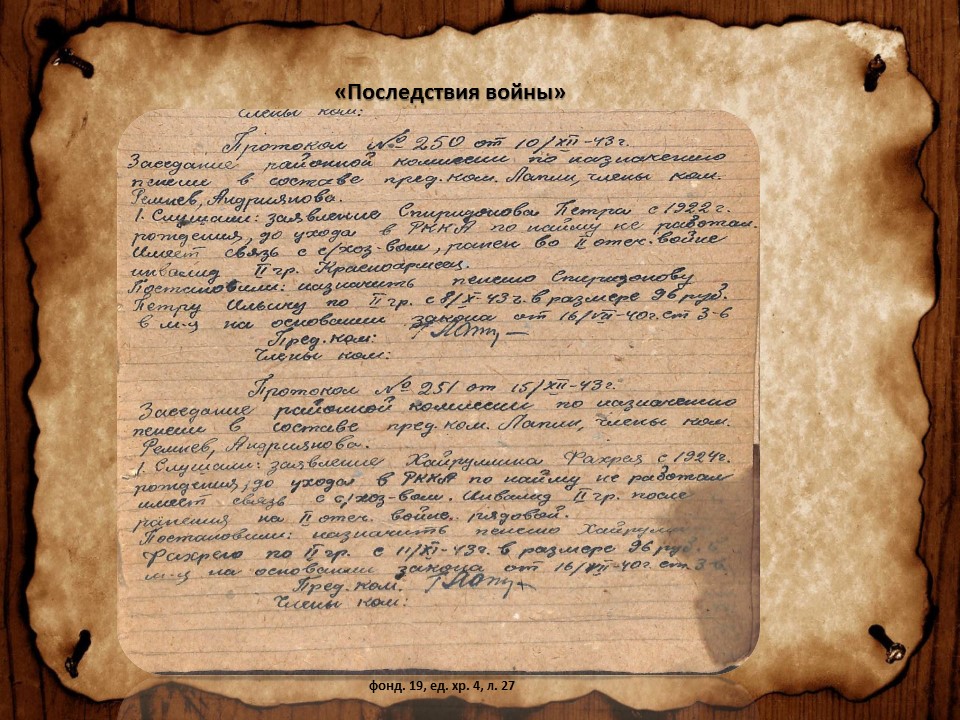 «Последствия войны»
Члены ком:
Протокол № 250 от 10/XII-43г.
Заседание районной комиссии по назначению
пенсии в составе пред.ком. Лапин, члены ком.
Ремнев, Андриянова.
1. Слушали: заявление Спиридонова Петра с 1922г.
рождения, до ухода в РККА по найму не работал.
Имеет связь с с/хоз-вом, ранен во II отеч.войне
инвалид II гр. Красноармеец.
Постановили: назначить пенсию Спиридонову
Петру Ильичу по II гр. с 8/X-43г. в размере 96 руб.
в м-ц на основании закона от 16/VII-40г. ст 3-б
Пред.ком:
Члены ком:
Протокол № 251 от 15/XII-43г.
Заседание районной комиссии по назначению
пенсии в составе пред.ком. Лапин, члены ком.
Ремнев, Андриянова.
1. Слушали: заявление Хайруллина Фахрея с 1924г.
рождения, до ухода в РККА по найму не работал
имеет связь с с/хоз-вом. Инвалид II гр. после
ранения на II отеч. войне. рядовой.
Постановили: назначить пенсию
Фахрею по II гр. с 11/XI-43г. в размере 96 руб. в
м-ц на основании закона от 16/VII-40г. ст 3-в
Пред.ком.
Члены ком:
фонд. 19, ед. хр. 4, л. 27